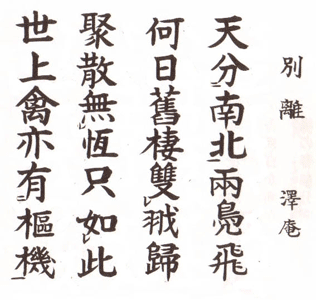 別離 澤庵
天分南北兩鳧飛
何日舊棲雙歸
聚散無恆只如此
世上禽亦有樞機